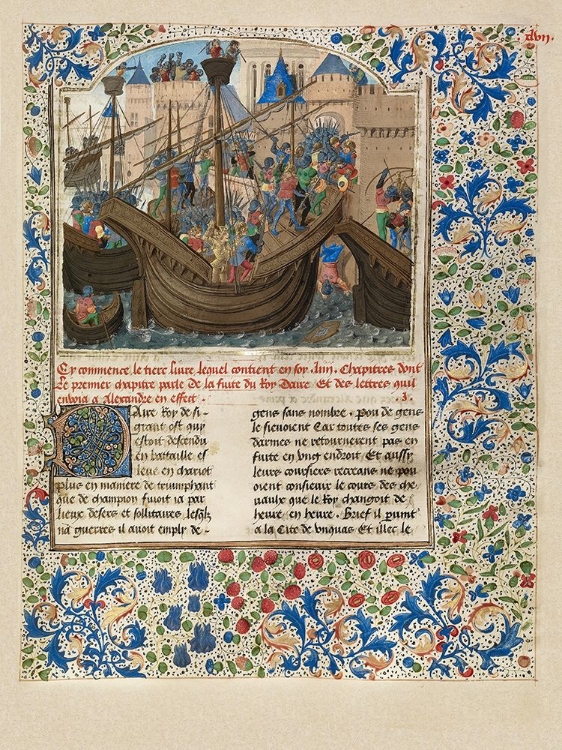 .xlvij.
Cy commence le tiers liure lequel contient en soy .xiiij. Chapitres dont
Le premier chapitre parle de la fuite du Roy Daire Et des lettres quil
enuoia a Alexandre en effect .
Daire Roy de si
grant ost quy
estoit descendu
en bataille es
leue en chariot
plus en maniere de triumphant
que de champion fuioit ia par
lieux desers et sollitaires lesqlz
na guerres il auoit emply de
gens sans nombre . pou de gens
le sieuoient Car toutes ses gens
darmes ne retournerent pas en
fuite en vng endroit Et aussy
leurs coursiers recreans ne pou
oient consieuir le cours des che
uaulx que le Roy changoit de
heure en heure . Brief il vint
a la Cite de vnquas Et illec le